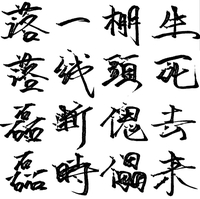 生死去来
棚頭傀儡
一线断時
落落磊磊